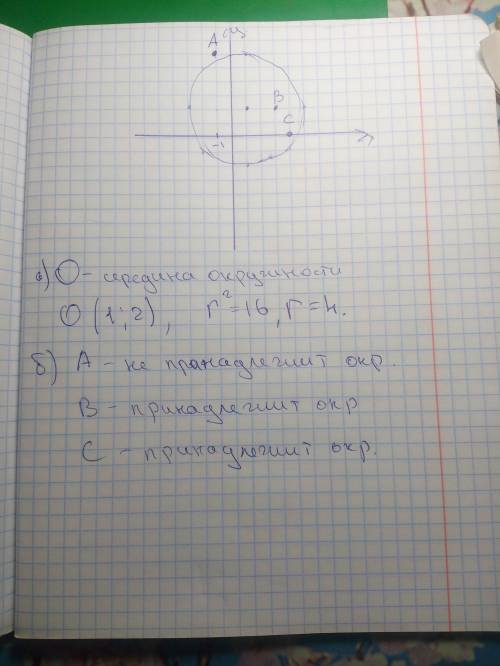 y
A
B
C
-1
а) О - середина окружности
О (1; 2), r²=16, r=4.
б) А - не принадлежит окр.
В - принадлежит окр
С - принадлежит окр.